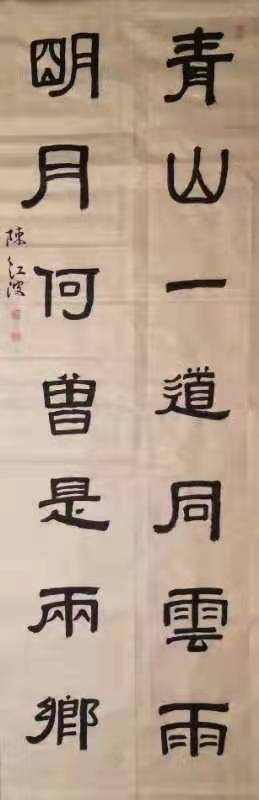 青山一道同雲雨
明月何曾是兩鄉
陳江波